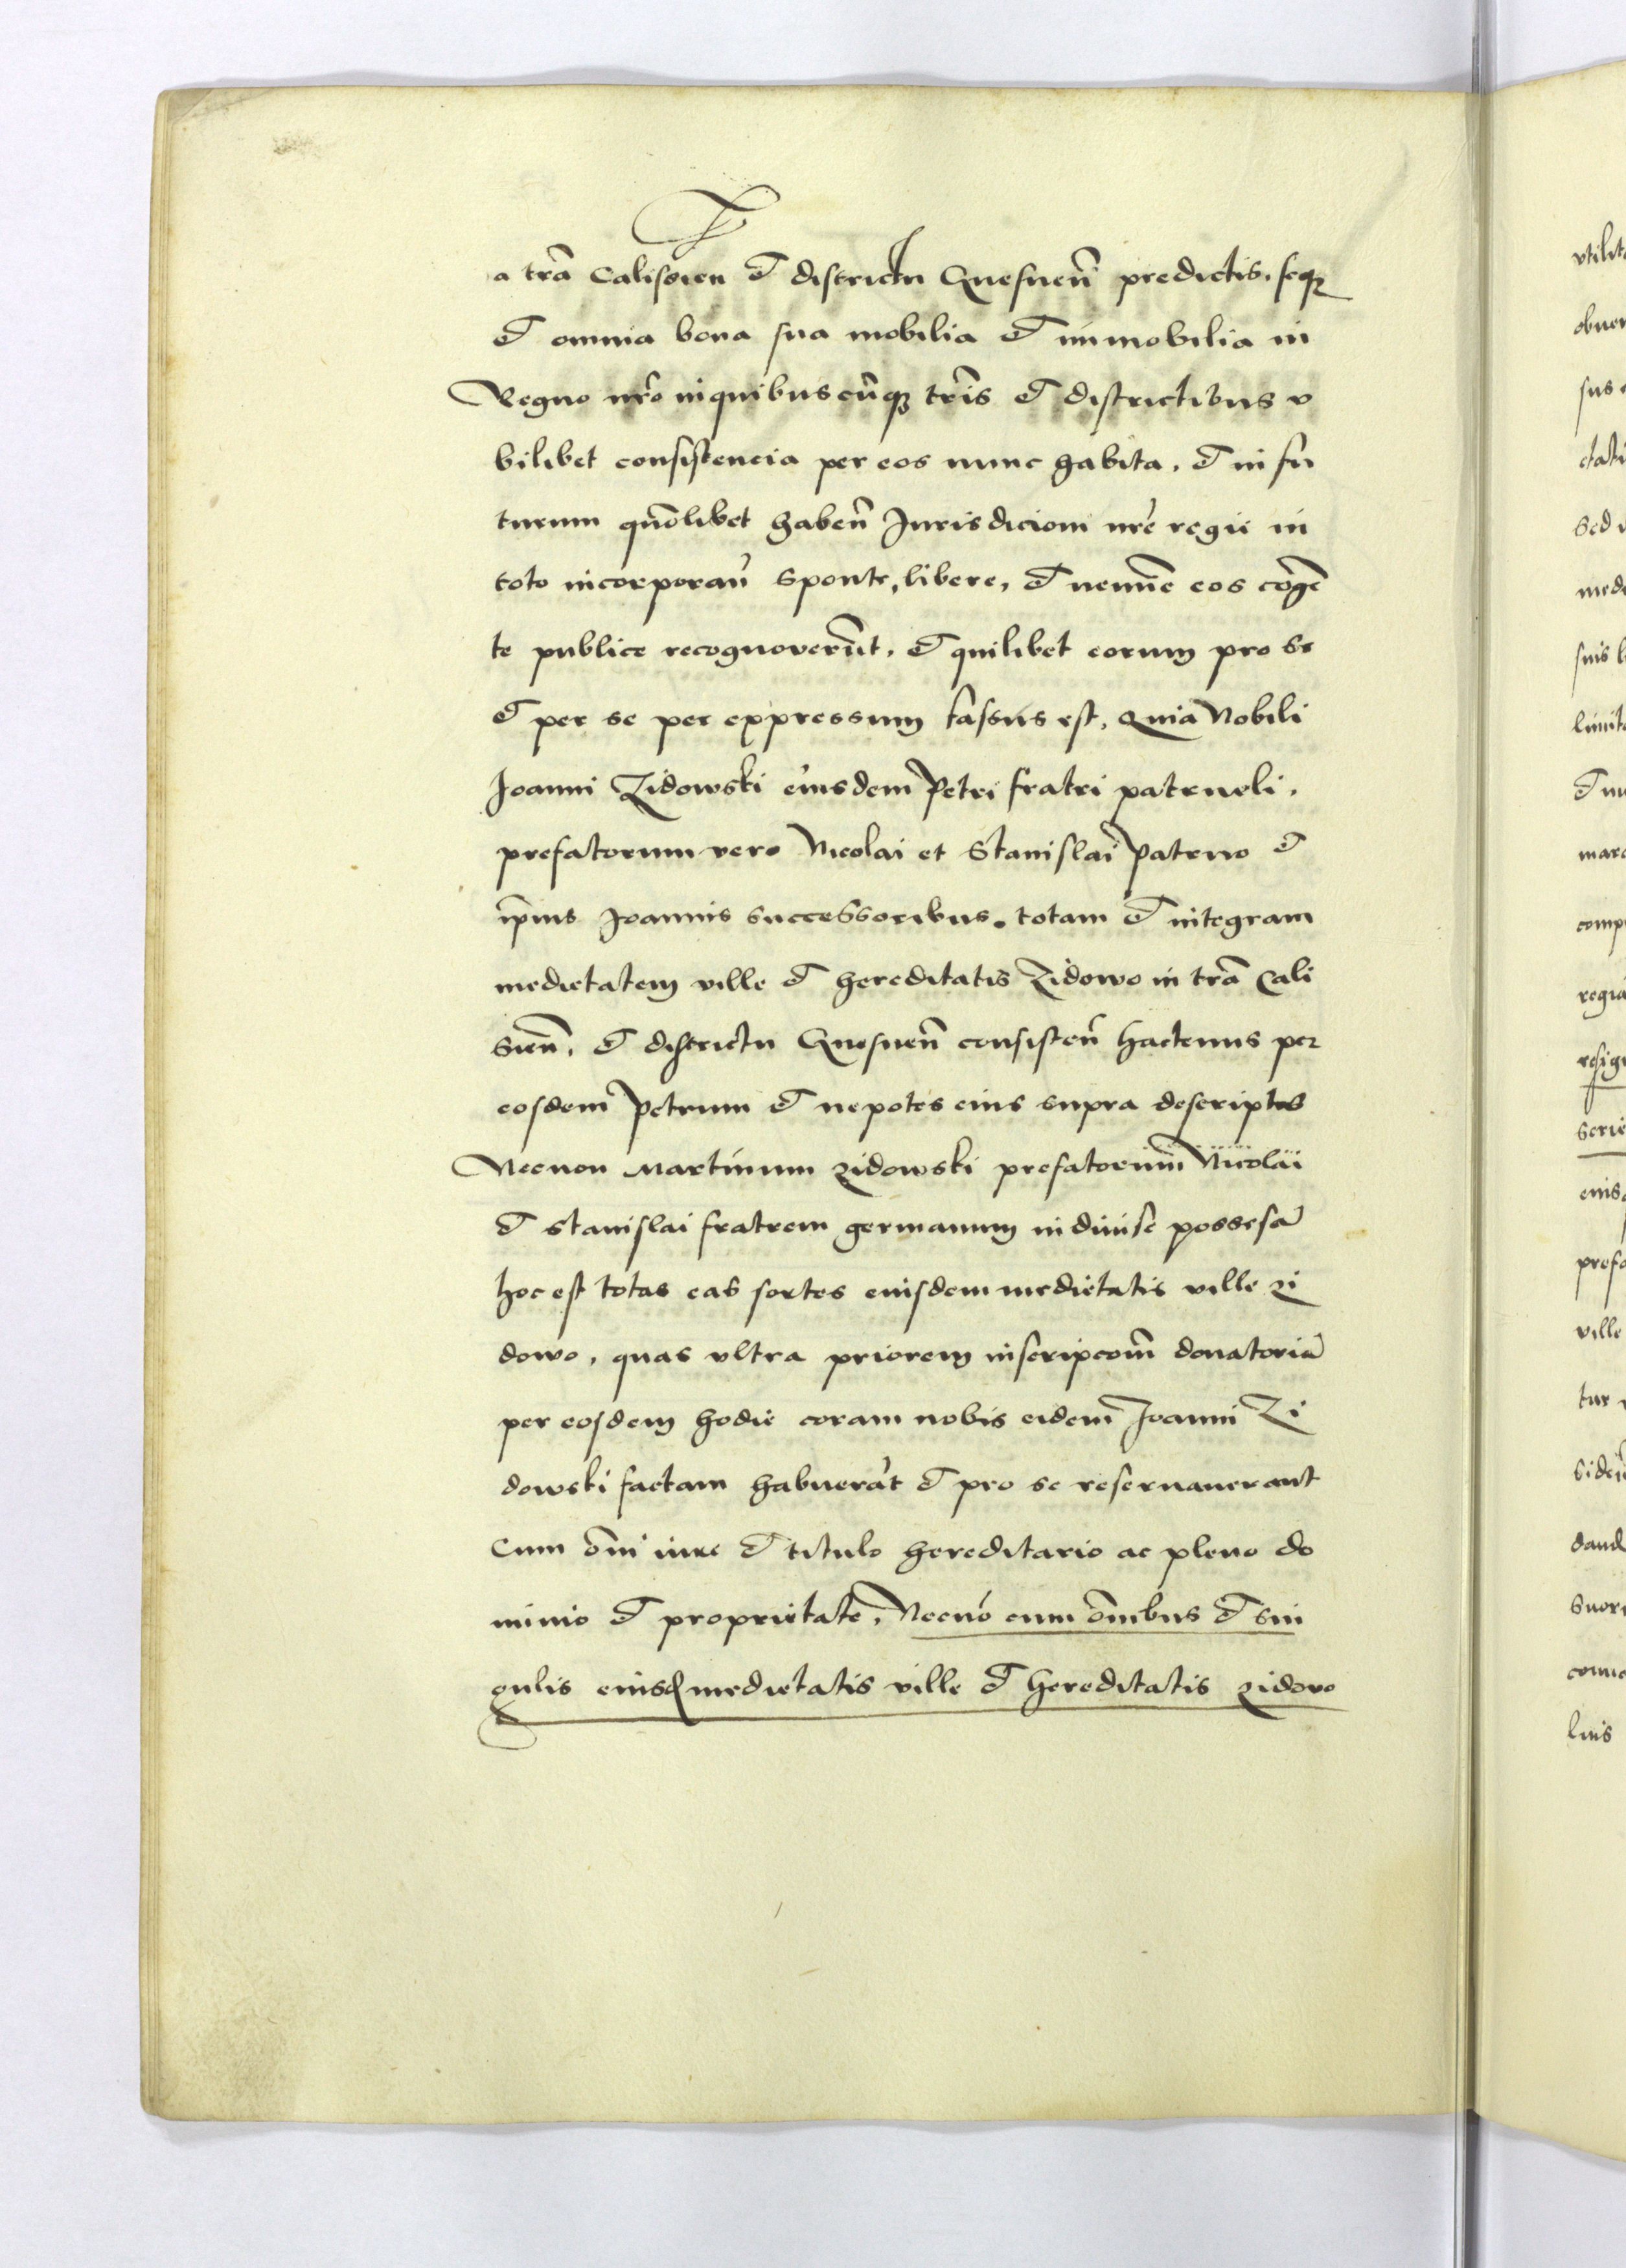 a trã Calisien et districtu Gnesnen̄ predictis. seqz
et omnia bona sua mobilia et immobilia in
Regno nr̄o in quibuscūqz tr̄is et districtibus v
bilibet consistencia per eos nunc habita, et in fu
turum quōlibet haben̄ Jurisdicioni nr̄e regie in
toto incorporan̄ sponte, libere, et nemīe eos cōgē
te publice recognoverūt, et quilibet eorum pro se
et per se per expressum fassus est, Quia Nobili
Joanni Zidowski eiusdem Petri fratri patrueli,
prefatorum vero Nicolai et Stanislai Patruo et
ip̄ius Joannis successoribus. totam et integram
medietatem ville et hereditatis Zidowo in trā Cali
sien̄, et districtu Gnesnen̄ consisten̄ hactenus per
eosdem Petrum et nepotes eius supra descriptos
Necnon Martinum Zidowski prefatorum Nicolai
et Stanislai fratrem germanum indivise possessā
hoc est totas eas sortes eiusdem medietatis ville Zi
dowo, quas vltra priorem inscripcōm donatoriā
per eosdem hodie coram nobis eidem Joanni Zi
dowski factam habuerāt et pro se reservaverant
Cum om̄i iure et titulo hereditario ac pleno do
minio et proprietate, Necnō cum om̄ibus et sin
gulis eiusd medietatis ville et hereditatis Zidowo
vtilit
obuen
sus
ctati
sed
medi
suis
limit
et
marc
comp
regia
resig
serie
eius
prefa
ville
tur
side
dand
suor
luis